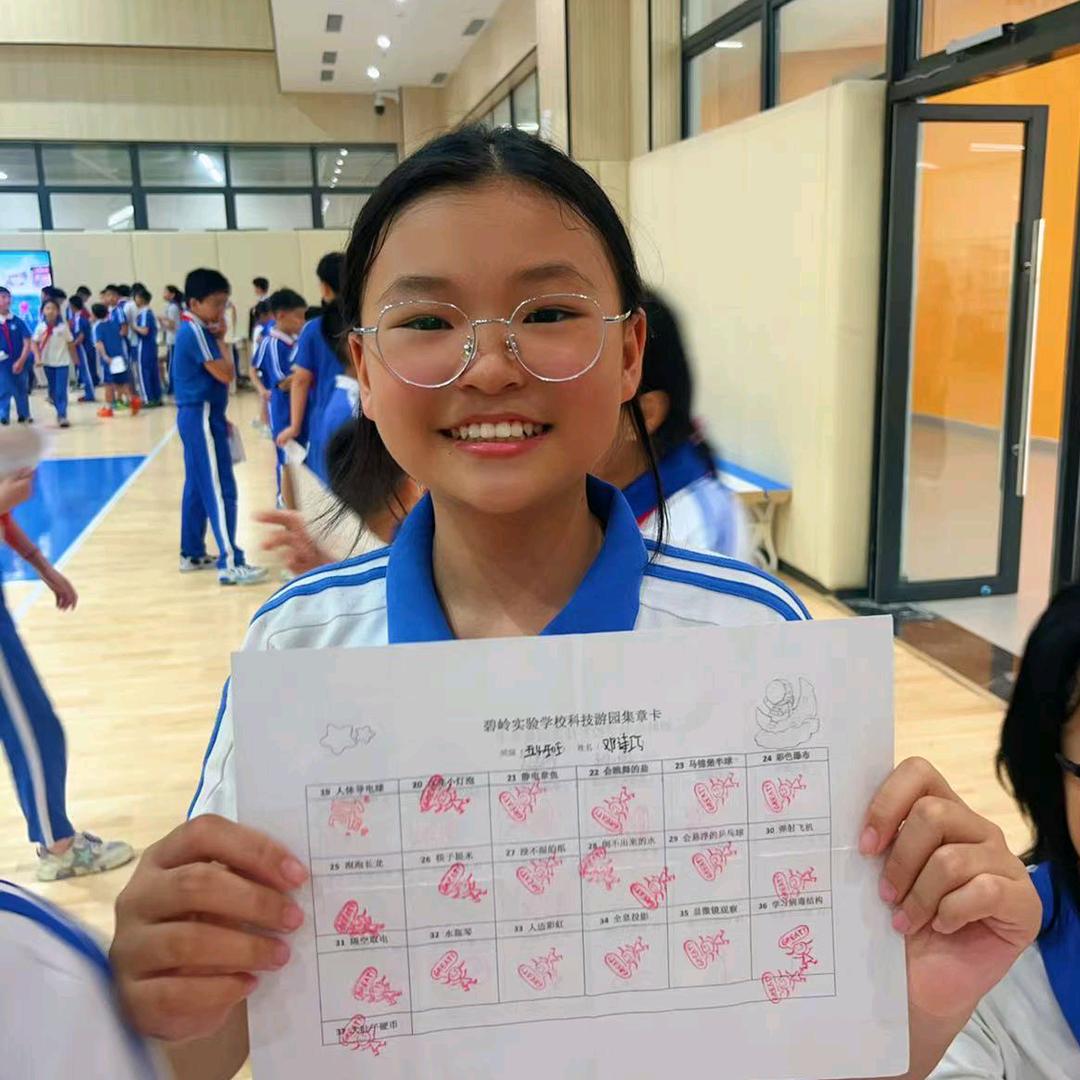 碧岭实验学校科技游园集章卡
班级： 姓名：邓诗巧
19 人体导电球 20 小灯泡 21 静电章鱼 22 会跳舞的盐 23 马德堡半球 24 彩色瀑布
GREAT! GREAT! GREAT! GREAT! GREAT!
25 泡泡长龙 26 筷子提米 27 浸不湿的纸 28 倒不出来的水 29 会悬浮的乒乓球 30 弹射飞机
GREAT! GREAT! GREAT! GREAT! GREAT! GREAT!
31 隔空取电 32 水琴 33 人造彩虹 34 全息投影 35 显微镜观察 36 学习病毒结构
GREAT! GREAT! GREAT! GREAT! GREAT! GREAT! GREAT!
37 硬币
GREAT!